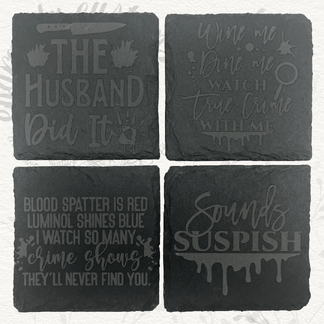 THE
HUSBAND
Did It
Wine me
Dine me
WATCH
True Crime
WITH ME
BLOOD SPATTER IS RED
LUMINOL SHINES BLUE
I WATCH SO MANY
crime shows
THEY'LL NEVER FIND YOU.
Sounds
SUSPISH